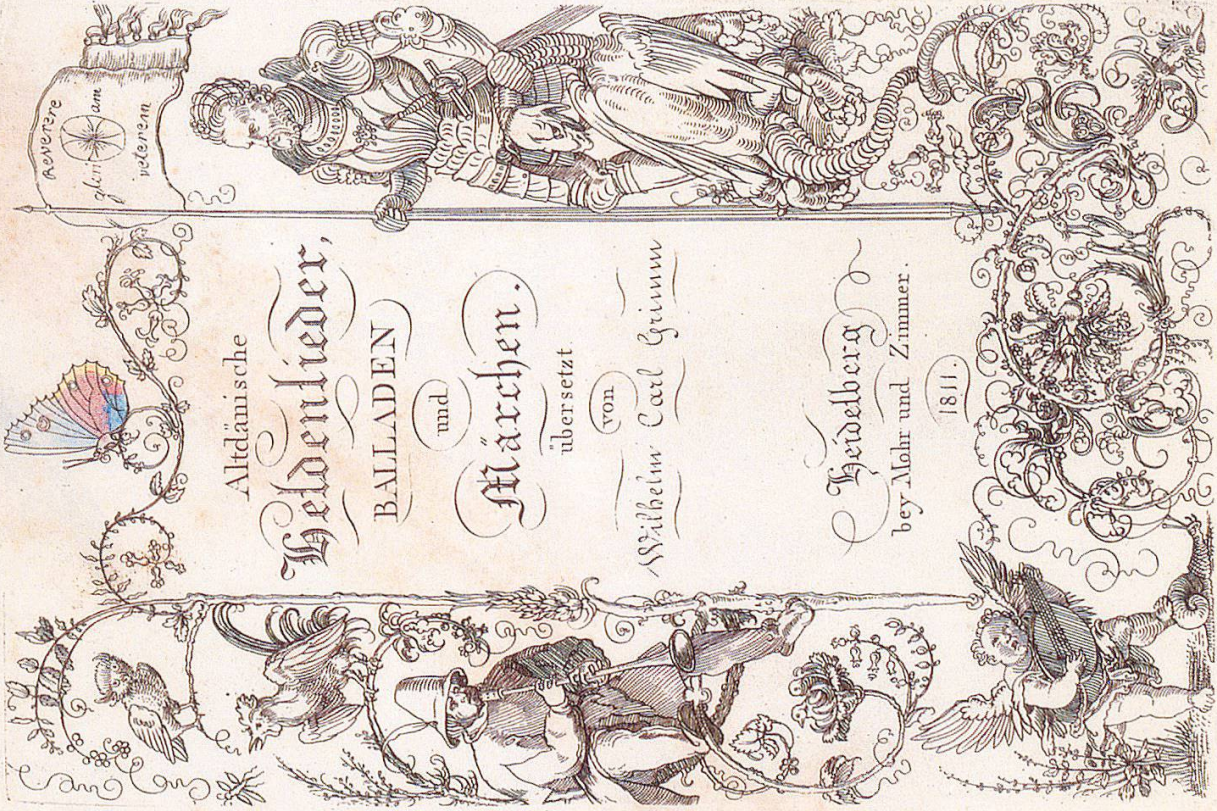 Reverere
gloriam
veterem
Altdänische
Heldenlieder,
BALLADEN
und
Märchen.
übersetzt
von
Wilhelm Carl Grimm
Heidelberg
bey Mohr und Zimmer.
1811.